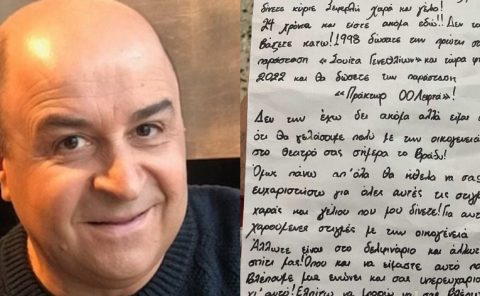 δίνετε κύριε Σεφερλή χαρά και γέλιο!
24 χρόνια και είστε ακόμα εδώ!! Δεν το
βάζετε κάτω! 1998 δώσατε την πρώτη σας
παράσταση «Σουίτα Γενεθλίων» και τώρα
2022 και θα δώσετε την παράσταση
«Πράκτωρ 00Λεφτά»!
Δεν την έχω δει ακόμα αλλά είμαι
ότι θα γελάσουμε πολύ με την οικογένειά
στο θέατρό σας σήμερα το βράδυ!
Όμως πάνω απ'όλα θα ήθελα να σας
ευχαριστήσω για όλες αυτές τις στιγμ
χαράς και γέλιου που μου δίνετε! Για αυτ
χαρούμενες στιγμές με την οικογένειά
Άλλωτε είναι στο δελφινάριο και άλλωτ
σπίτι μας! Όπου και να είμαστε αυτό πο
βλέπουμε μας ενώνει και σας υπερευχαρισ
γι'αυτό! Ελπίζω να